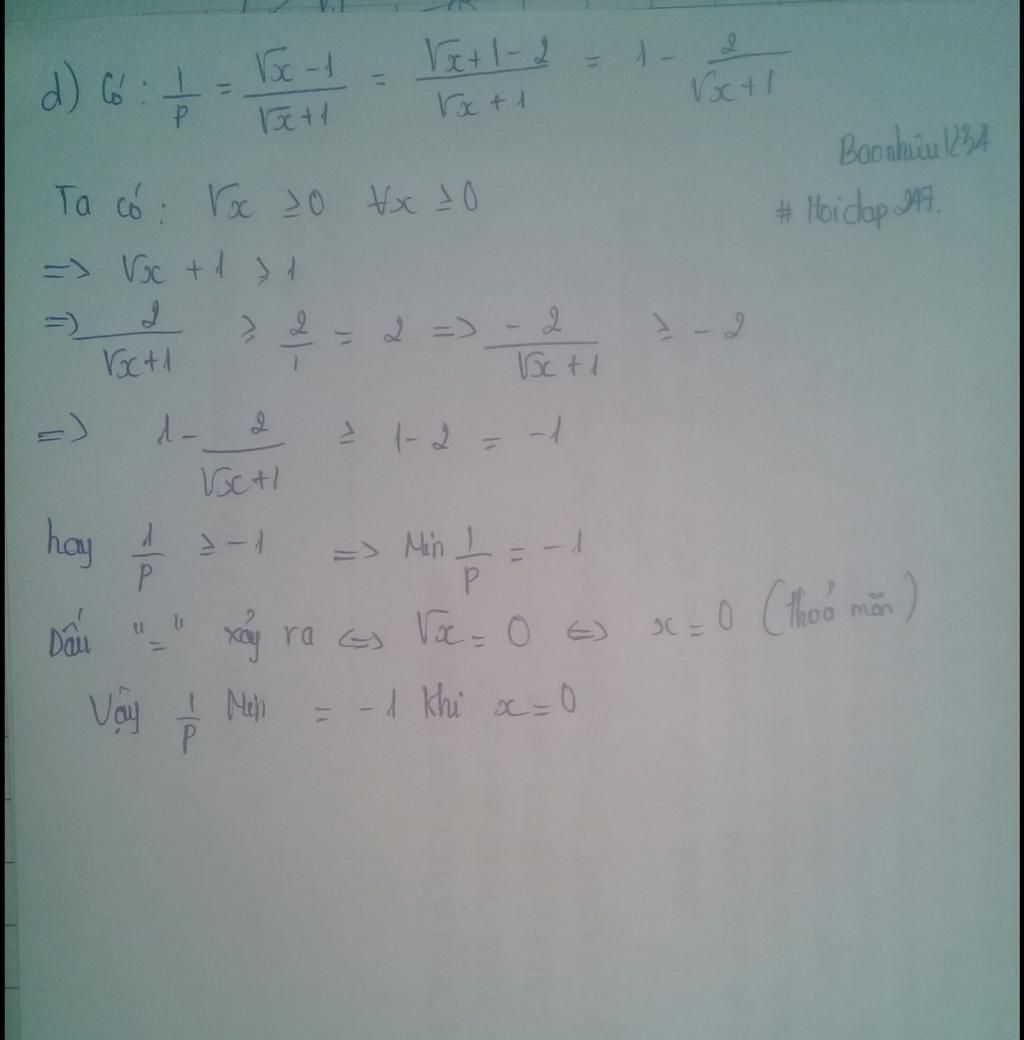 d) Có : 1/P = (√x - 1)/(√x + 1) = (√x + 1 - 2)/(√x + 1) = 1 - 2/(√x + 1)
# Hoidap247.
Ta có : √x ≥ 0 ∀x ≥ 0
=> √x + 1 ≥ 1
=> 2/(√x + 1) ≥ 2/1 = 2 => -2/(√x + 1) ≥ -2
=> 1 - 2/(√x + 1) ≥ 1 - 2 = -1
hay 1/P ≥ -1 => Min 1/P = -1
Dấu "=" xảy ra <=> √x = 0 <=> x = 0 (thoả mãn)
Vậy 1/P Min = -1 khi x = 0